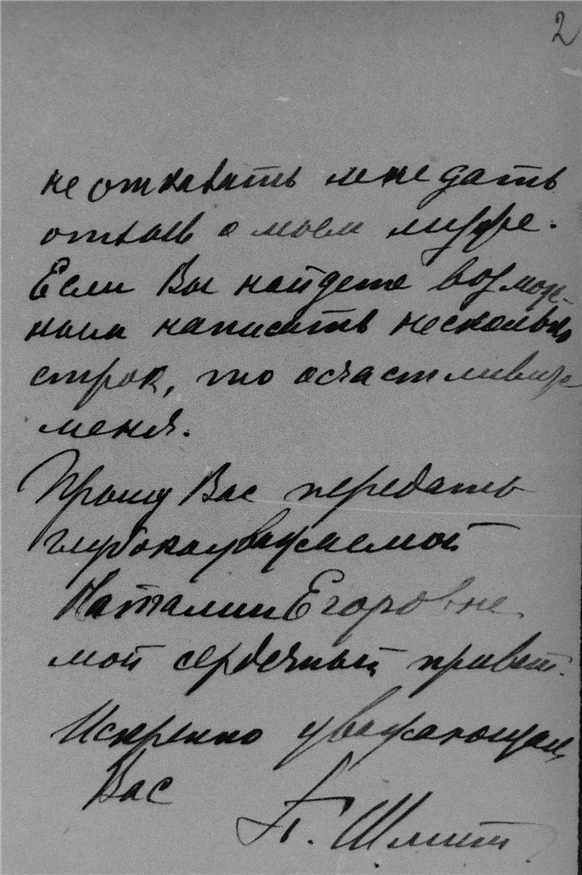 2
не отказать мне дать
отзыв о моем
Если Вы найдете возмож-
ным написать несколько
строк, то осчастливите
меня.
Прошу Вас передать
глубокоуважаемой
Наталии Егоровне
мой сердечный привет.
Искренно уважающая
Вас
Шмит